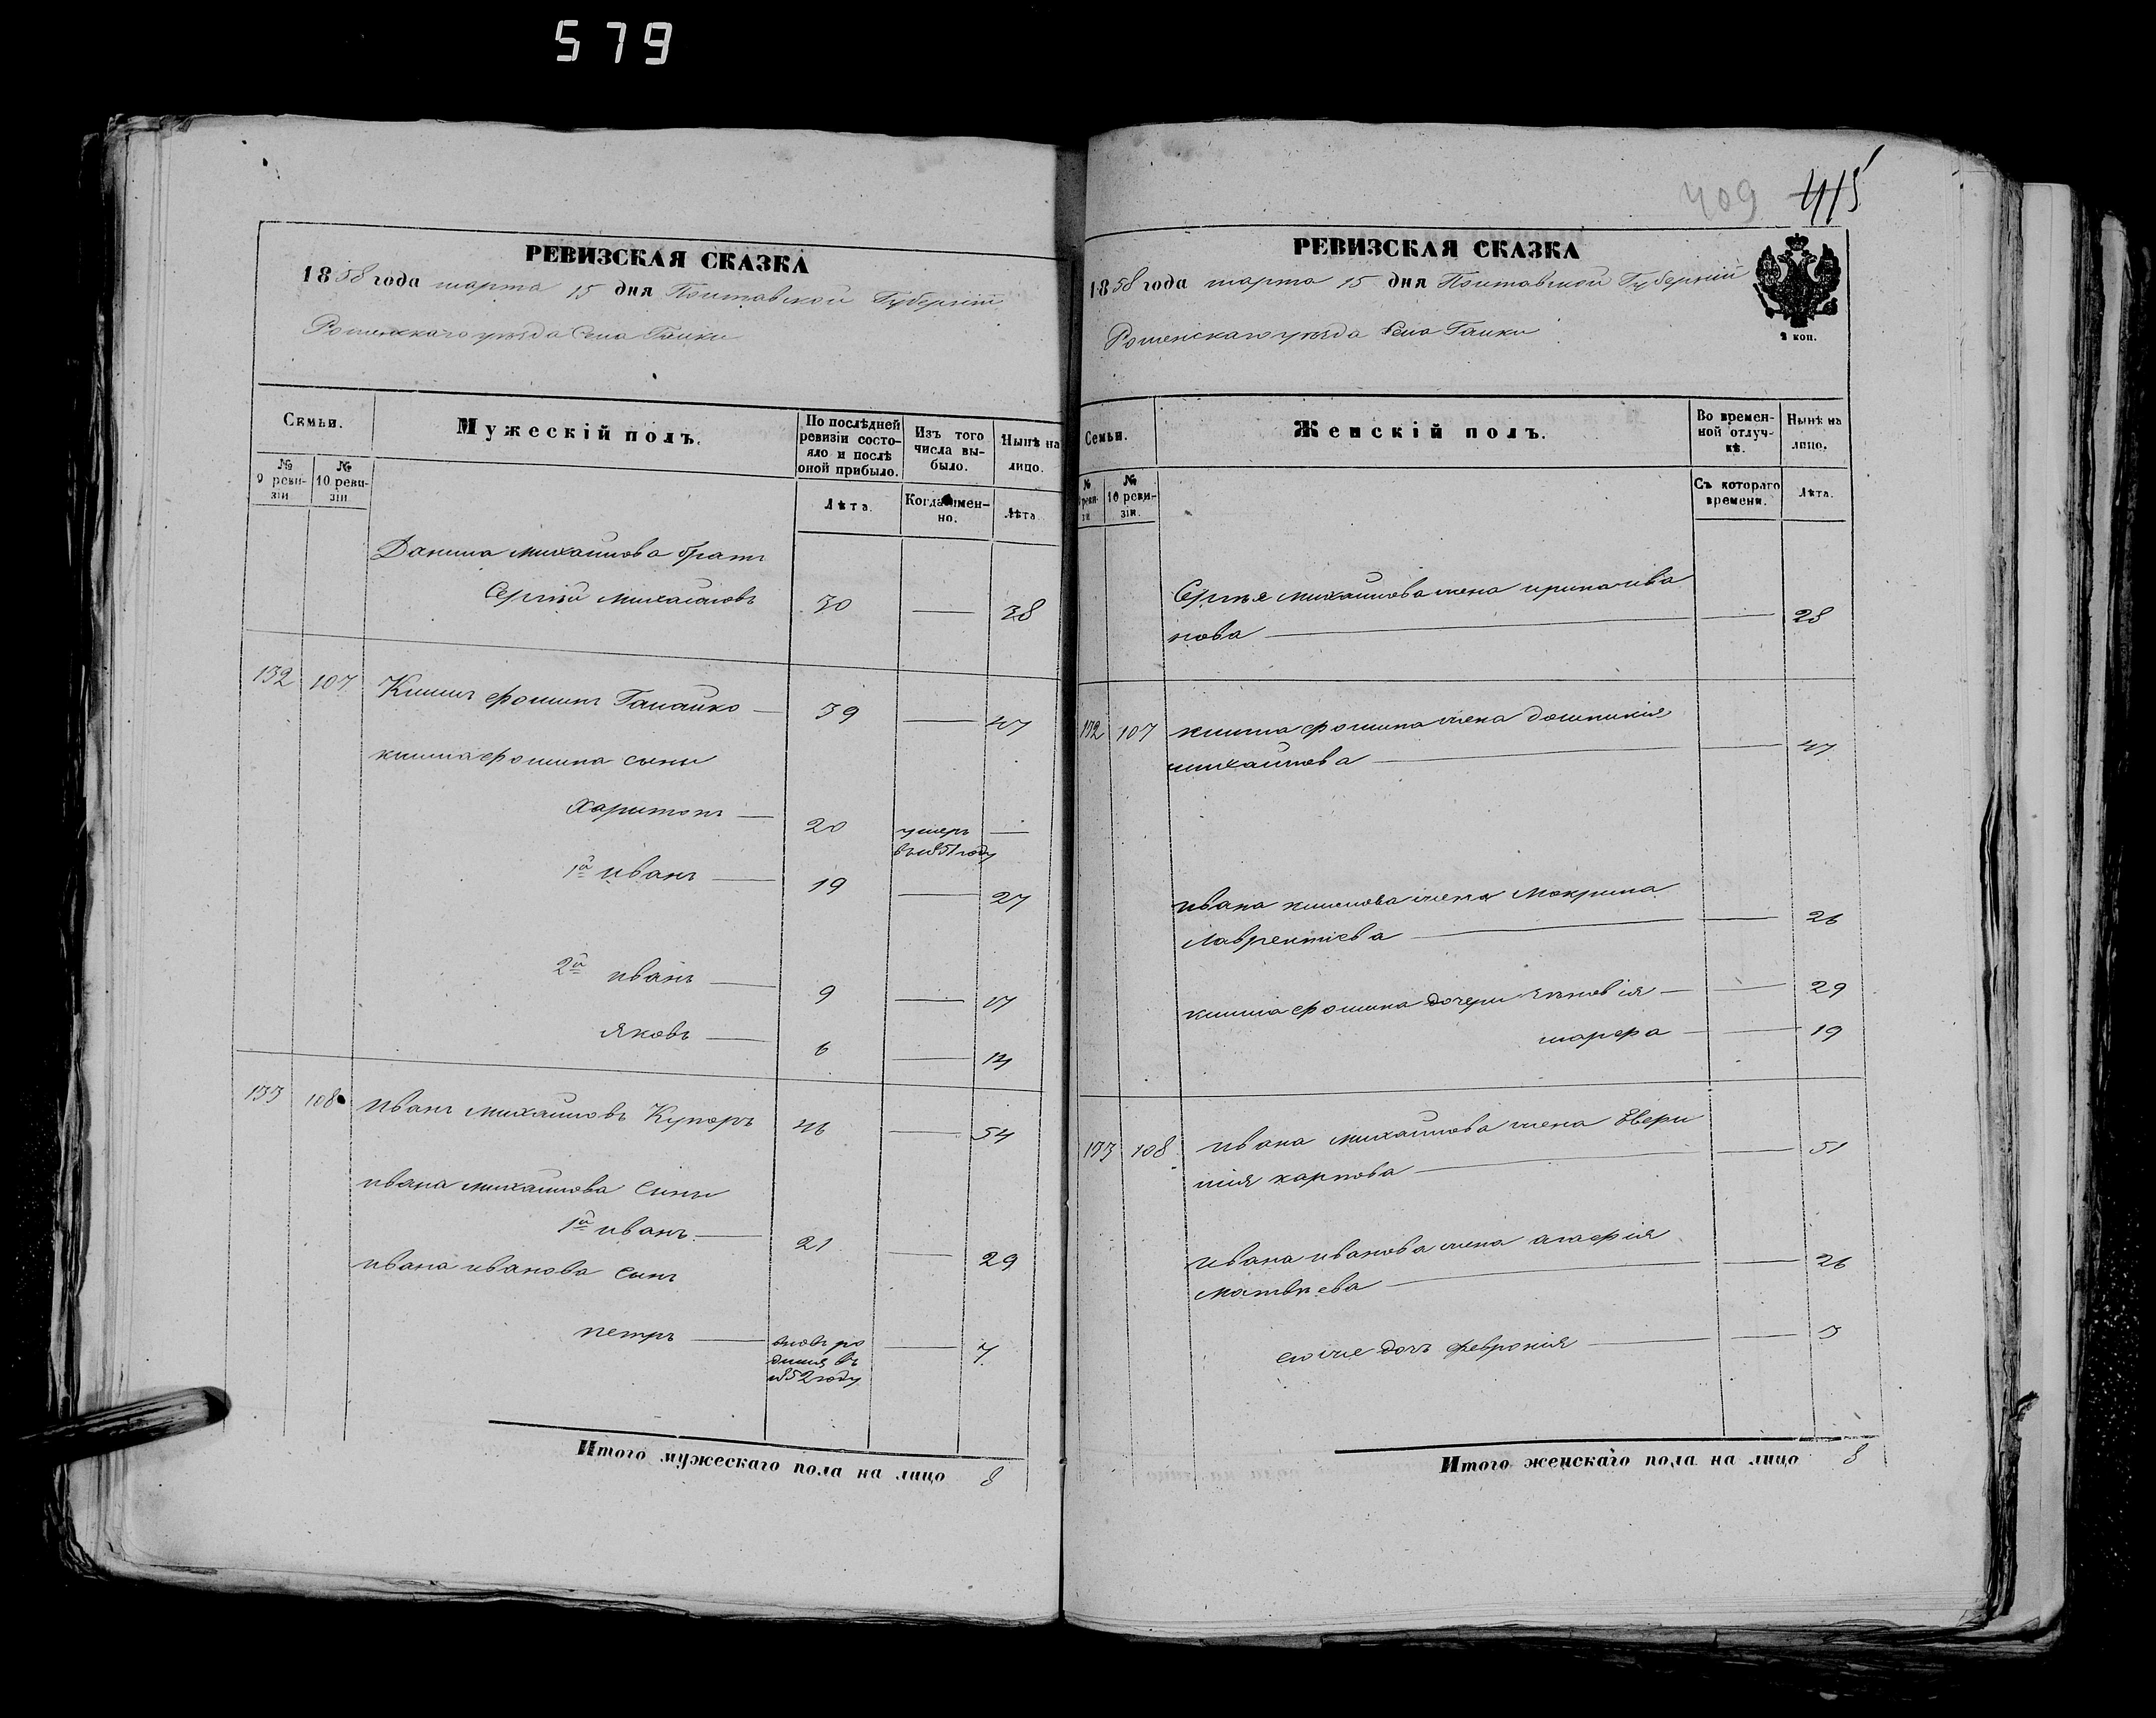 579
РЕВИЗСКАЯ СКАЗКА
1858 года марта 15 дня Полтавской Губерніи
Роменскаго уѣзда Села Галки
Семьи.
Мужескій полъ.
По послѣдней ревизіи состояло и послѣ оной прибыло.
Изъ того числа выбыло.
Нынѣ на лицо.
№ 9 ревизіи
№ 10 ревизіи
Лѣта.
Когда именно.
Лѣта
Данила михайлова братъ
Сергѣй михайловъ 30 — 38
132 107 Климъ фоминъ Галайко — 39 — 47
клима фомина сыны
харитонъ — 20 умеръ —
въ 1851 году
1й иванъ — 19 — 27
2й иванъ — 9 — 17
яковъ — 6 — 14
133 108 иванъ михайловъ Купоръ 46 — 54
ивана михайлова сыны
1й иванъ — 21 — 29
ивана иванова сынъ
петръ — вновь ро — 7
дился въ
1852 году
Итого мужескаго пола на лицо 8
409 415
РЕВИЗСКАЯ СКАЗКА
1858 года марта 15 дня Полтавской Губерніи
Роменскаго уѣзда Села Галки
2 коп.
Семьи.
Женскій полъ.
Во временной отлучкѣ.
Нынѣ на лицо.
№ 9 ревизіи
№ 10 ревизіи.
Съ котораго времени.
Лѣта.
Сергѣя михайлова жена ирина ива
нова — — 28
132 107 клима фомина жена домникія
михайлова — — 47
ивана климова жена Макрина
лаврентіева — — 26
клима фомина дочери зѣновія — — 29
марфа — — 19
133 108 ивана михайлова жена Евери
нія карпова — — 51
ивана иванова жена агафія
матвѣева — — 26
ею же дочь феvронія — — 3
Итого женскаго пола на лицо 8